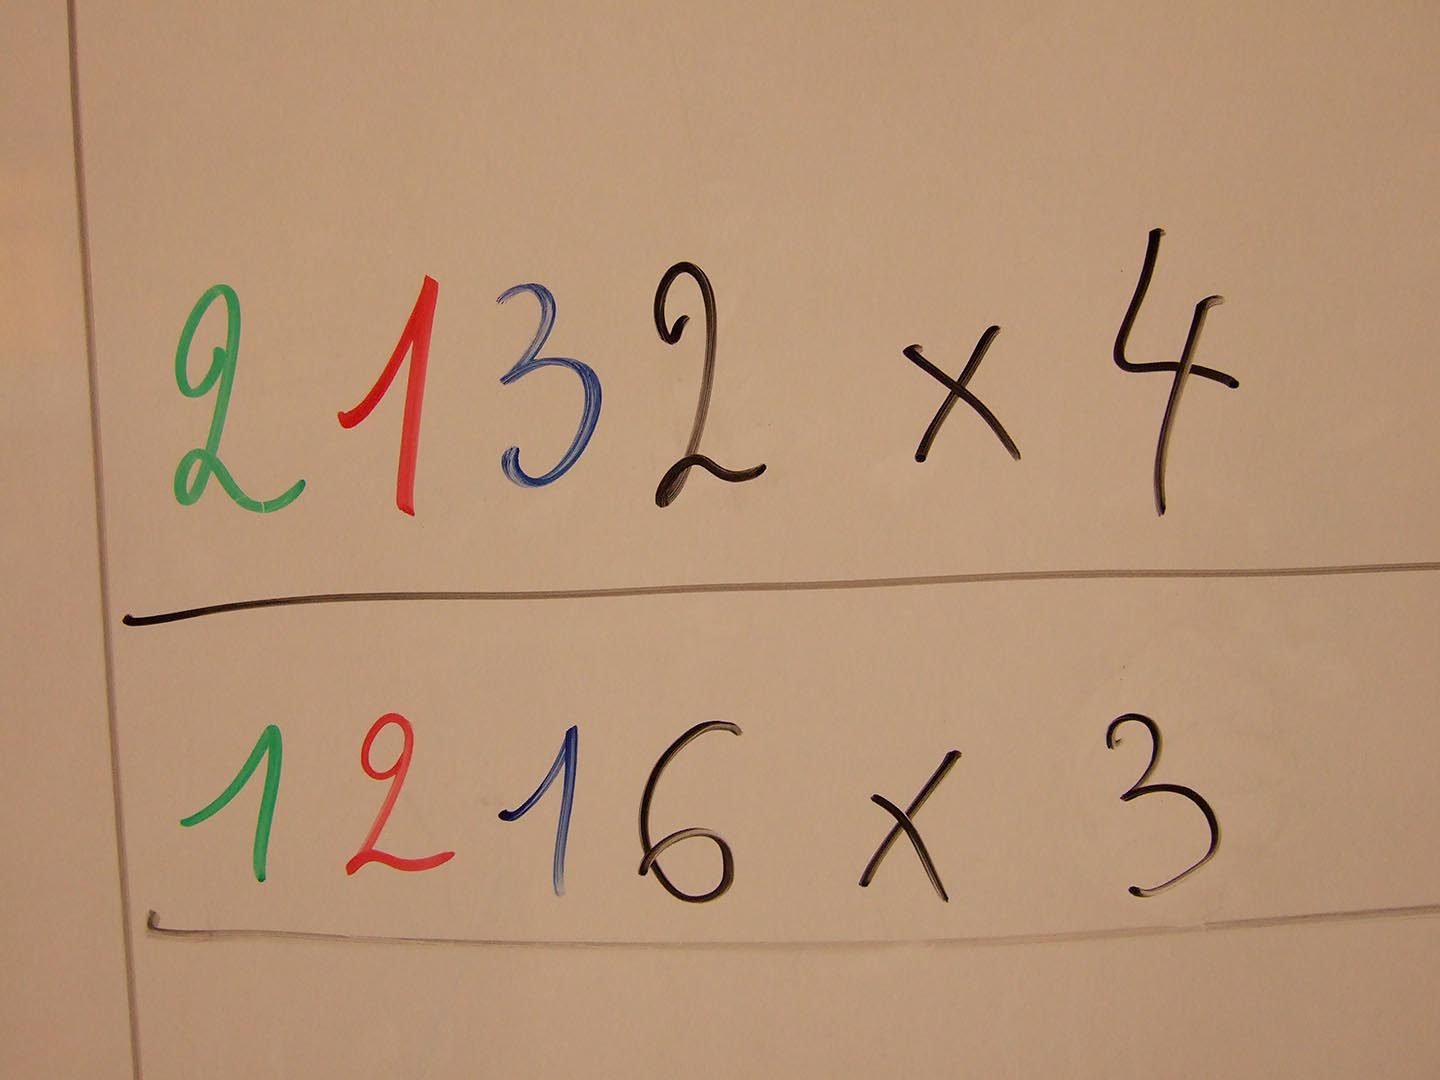 2132 x 4
1216 x 3